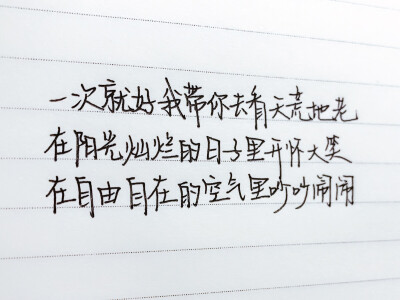 一次就好我带你去看天荒地老
在阳光灿烂的日子里开怀大笑
在自由自在的空气里吵吵闹闹